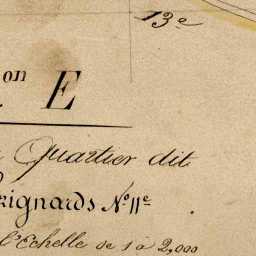 13e
on E
Quartier dit
rignards No 11e
l'Echelle de 1 à 2,000